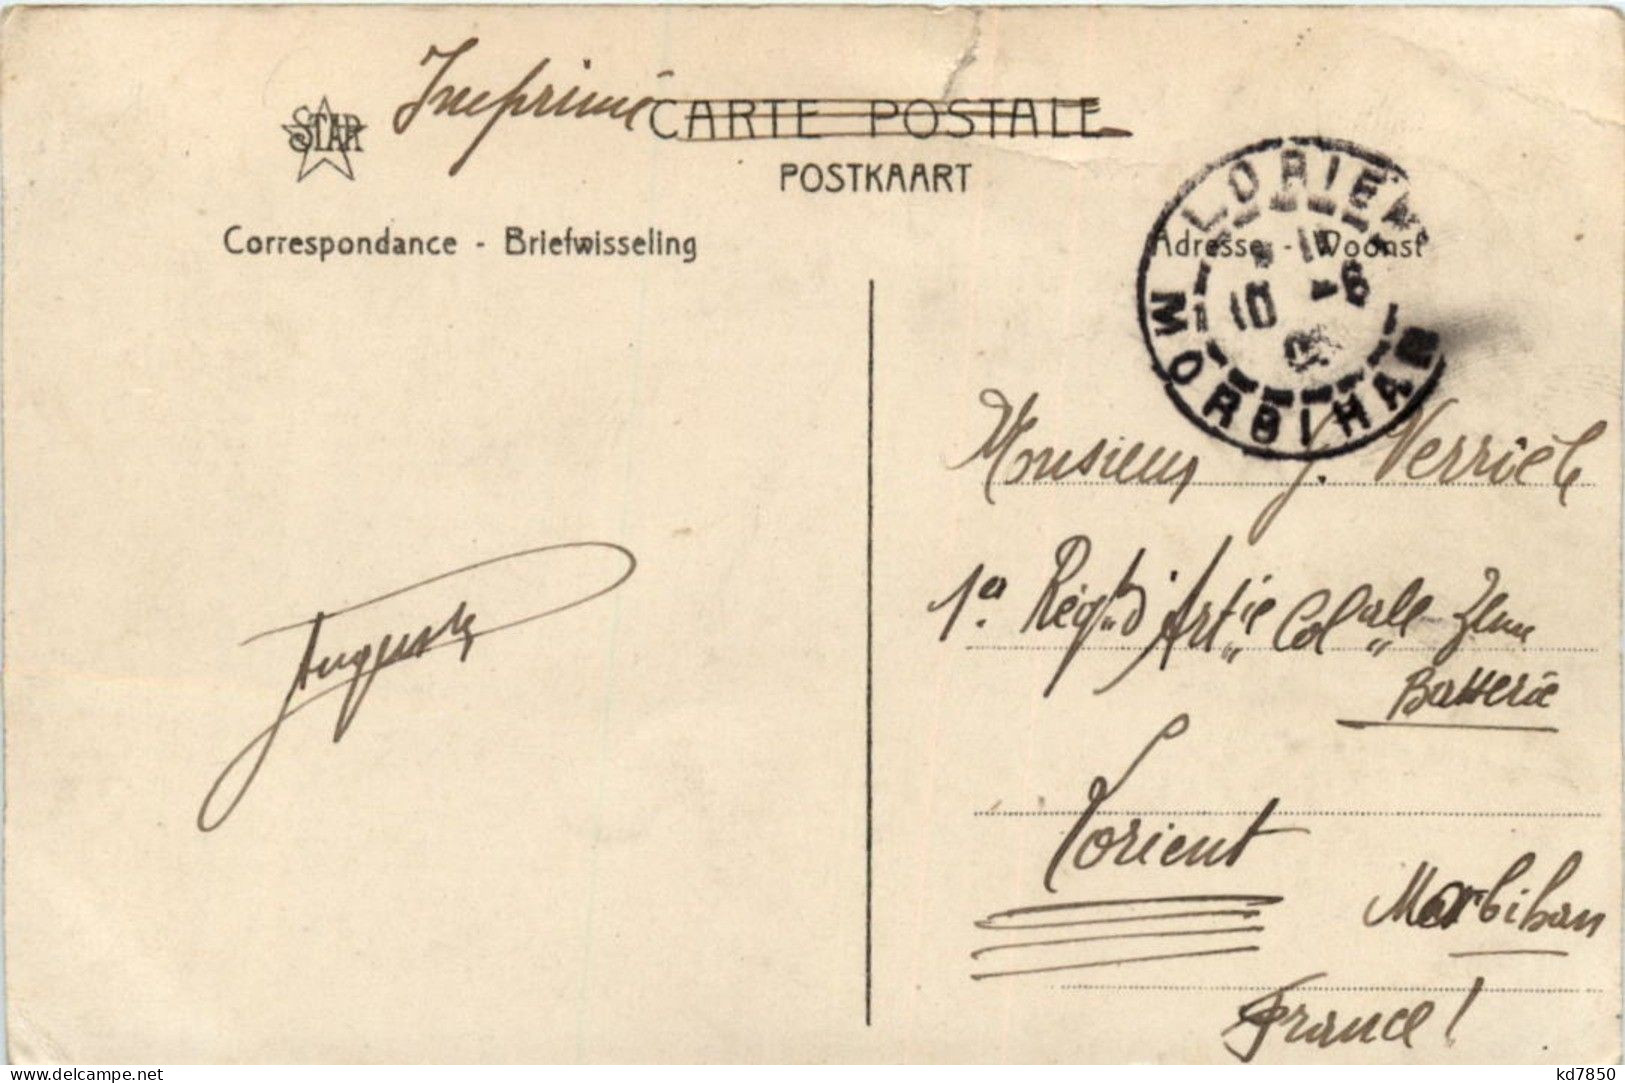 STAR
Imprimé CARTE POSTALE
POSTKAART
Correspondance - Briefwisseling
Adresse - Woonst
LORIENT
10 -6
MORBIHAN
Auguste
Monsieur J. Verrièle
1er Régt d'Artie Colale 2ème
Batterie
Lorient
Morbihan
France!
delcampe.net
kd7850